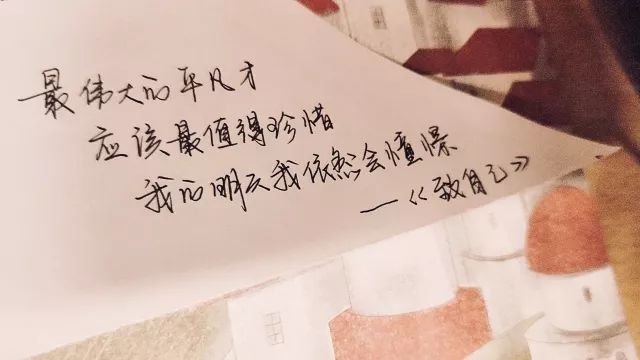 最伟大的平凡才
应该最值得珍惜
我的明天我依然会憧憬
——《致自己》